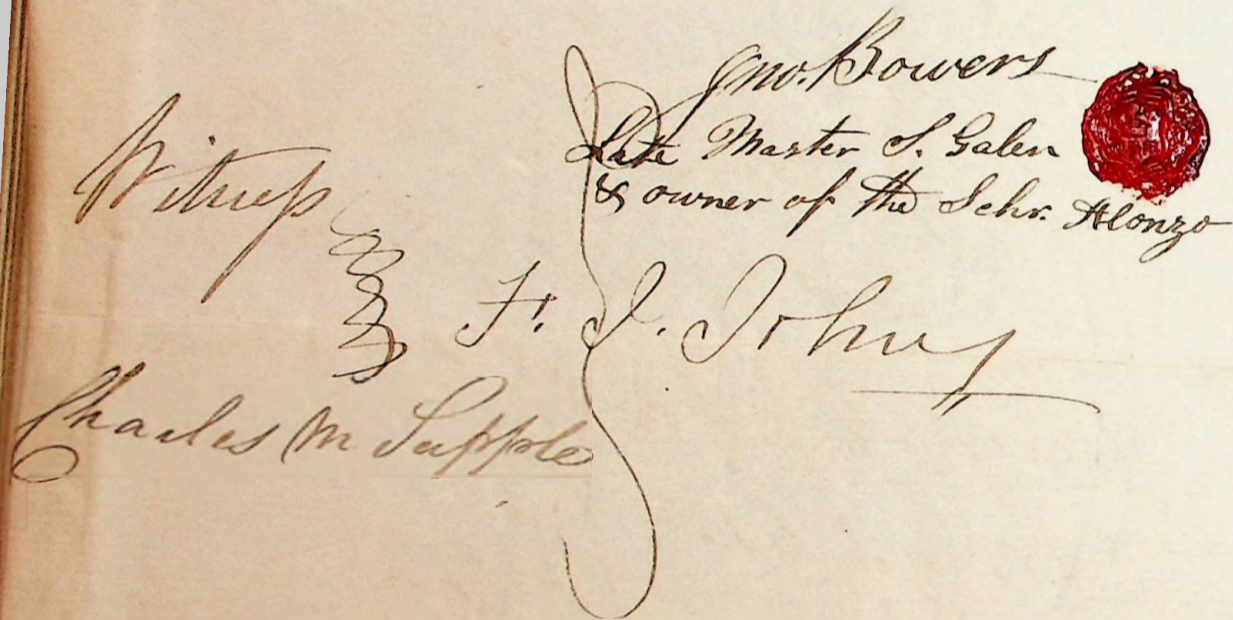 Jno. Bowers
Late Master S. Galen
& owner of the Schr. Alonzo
Witness
F. J. Johns
Charles M Supple